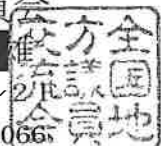 全国地
方議員
交流会
066